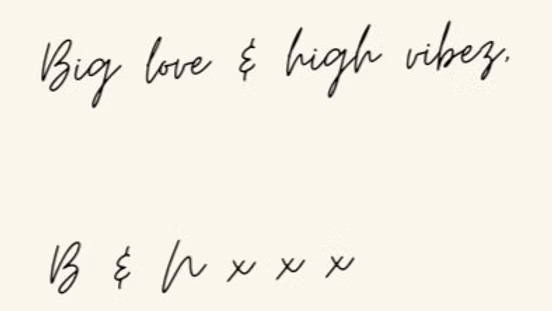 Big love & high vibez.
B & N x x x